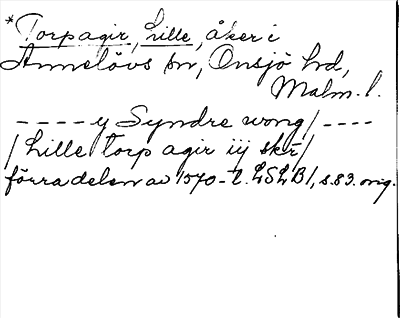 *Torpagir, Lille, åker i
Annelövs sn, Onsjö hd,
Malm. l.
---- y Syndre wong/----
/Lille torp agir iij skr/
förra delen av 1570-t. LSLB1, s. 83. orig.